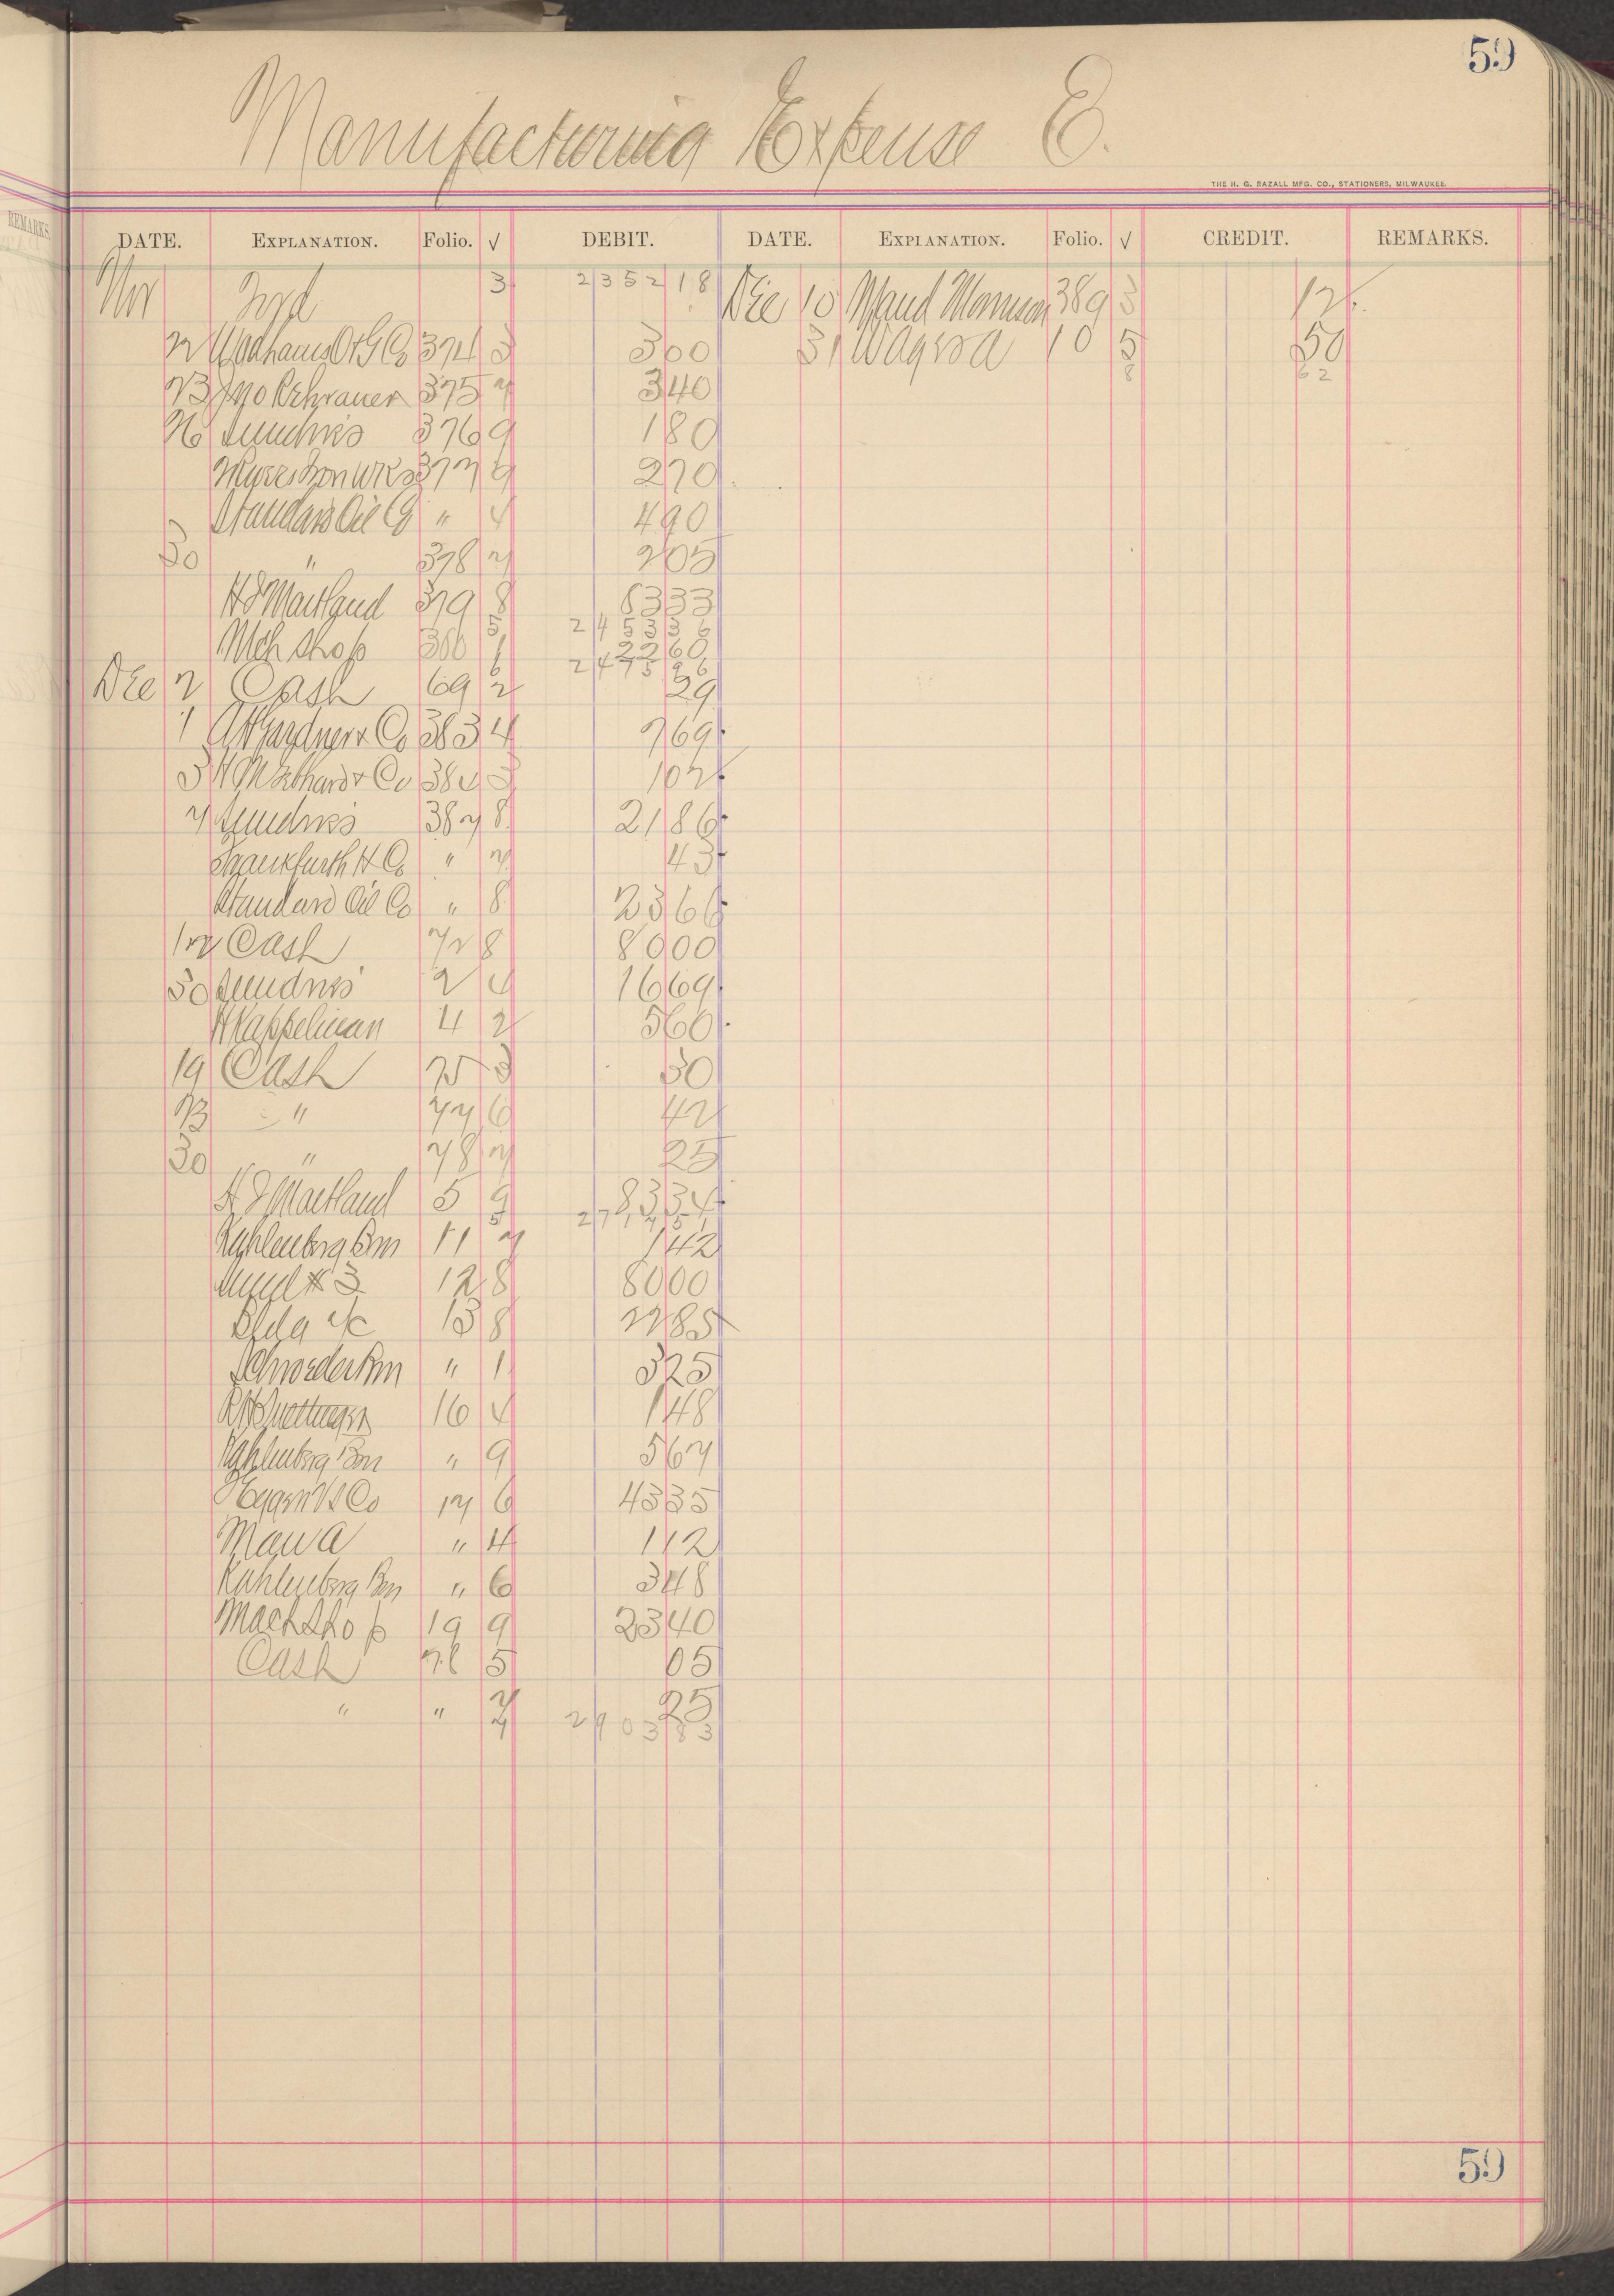 59
Manufacturing Expense E.
THE H. G. RAZALL MFG. CO., STATIONERS, MILWAUKEE.
REMARKS.
DATE. EXPLANATION. Folio. √ DEBIT. DATE. EXPLANATION. Folio. √ CREDIT. REMARKS.
Nov Ford 3 2352 18 Dec 10 Maud Morrison 389 3 12
22 Wadhams O & G Co 374 3 3 00 31 Wages a 10 5 50
23 Jno Rehrauer 375 7 3 40 8 62
26 Sundries 376 9 1 80
Iron Wks 377 9 2 70
Standard Oil Co " 4 4 90
30 " 378 7 2 05
H J Maitland 379 8 83 33
5 2453 36
Mch Shop 380 1 22 60
6 2475 96
Dec 2 Cash 69 2 29
1 A H Gardner & Co 383 4 7 69
3 & Co 384 3 1 02
7 Sundries 387 8 21 86
Frankfurth H Co " 7 43
Standard Oil Co " 8 23 66
12 Cash 72 8 80 00
30 Sundries 2 4 16 69
H Kappelman 4 2 5 60
19 Cash 75 3 30
23 " 77 6 42
30 " 78 7 25
H J Maitland 5 9 83 34
5 2717 51
Kahlenberg Bros 11 7 1 42
Sund # 3 12 8 80 00
Bldg a/c 13 8 22 85
Schroeder Bros " 1 3 25
16 4 1 48
Kahlenberg Bros " 9 5 67
Eggers V S Co 17 6 43 35
Mau a " 4 1 12
Kahlenberg Bros " 6 3 48
Mach Shop 19 9 23 40
Cash 78 5 05
" " 7 25
7 2903 83
59